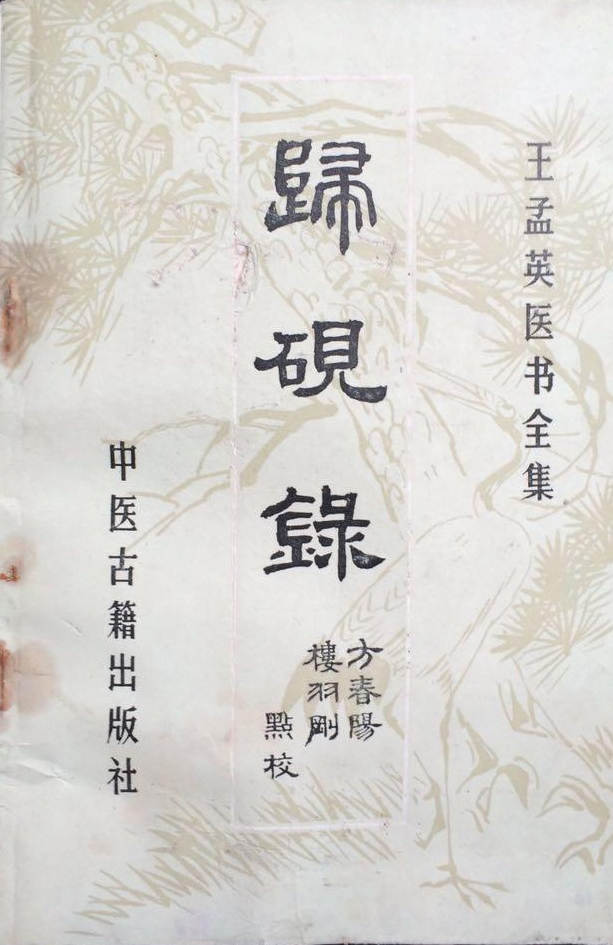 王孟英医书全集
歸硯錄
方春陽
樓羽剛
點校
中医古籍出版社